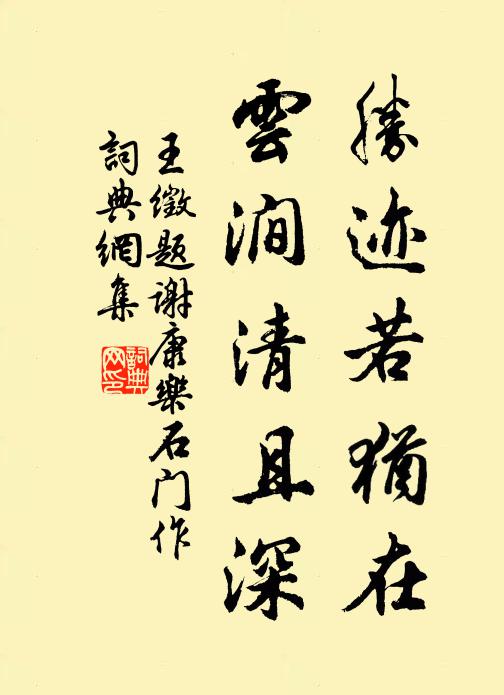 勝迹若猶在
雲澗清且深
王徵题謝康樂石门作
詞典網集
詞典网印